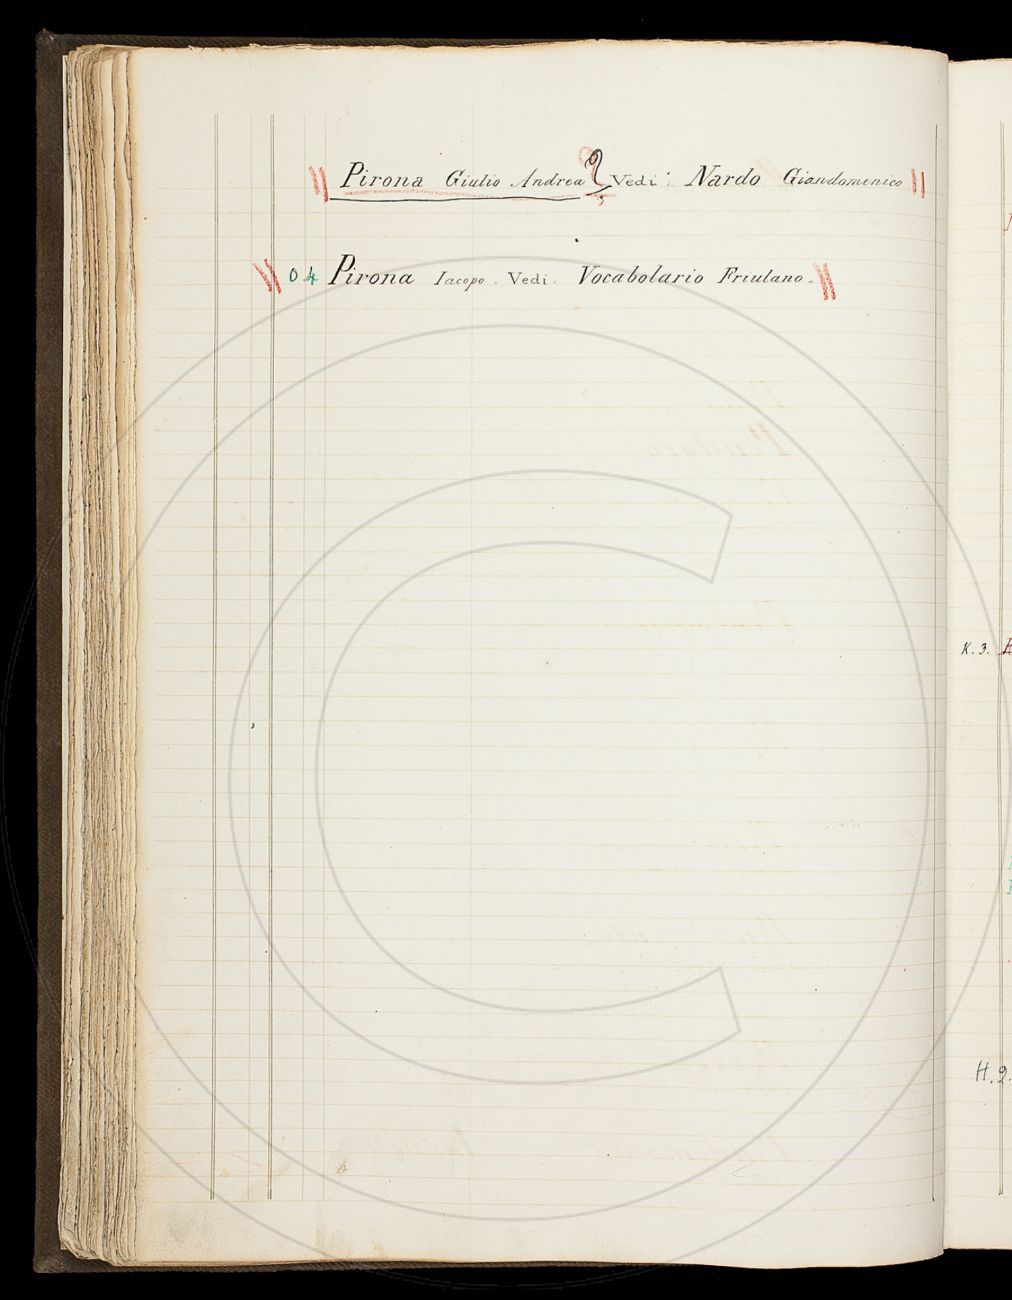 Pirona Giulio Andrea ? Vedi : Nardo Giandomenico
04 Pirona Iacopo . Vedi . Vocabolario Friulano .
K. 3.
H. 2.